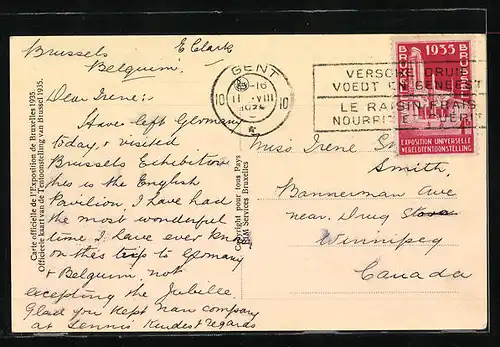 Brussels
Belguim.
E Clark
Dear Irene:
Have left Germany
today, & visited
Brussels Exhibition
this is the English
Pavilion. I have had
the most wonderful
time I have ever known
on this trip to Germany
& Belguim not
excepting the Jubilee.
Glad you kept nan company
at tennis Kindest regards
Carte officielle de l'Exposition de Bruxelles 1935.
Officieele kaart van de Tentoonstelling van Brussel 1935.
Copyright pour tous Pays
Services Bruxelles
GENT
10 10
VIII
VERSCHE DRUIF
VOEDT EN GENEEST
LE RAISIN FRAIS
NOURRIT
1935
EXPOSITION UNIVERSELLE
WERELDTENTOONSTELLING
Miss Irene
Smith,
Bannerman Ave
near Drug Store
Winnipeg
Canada